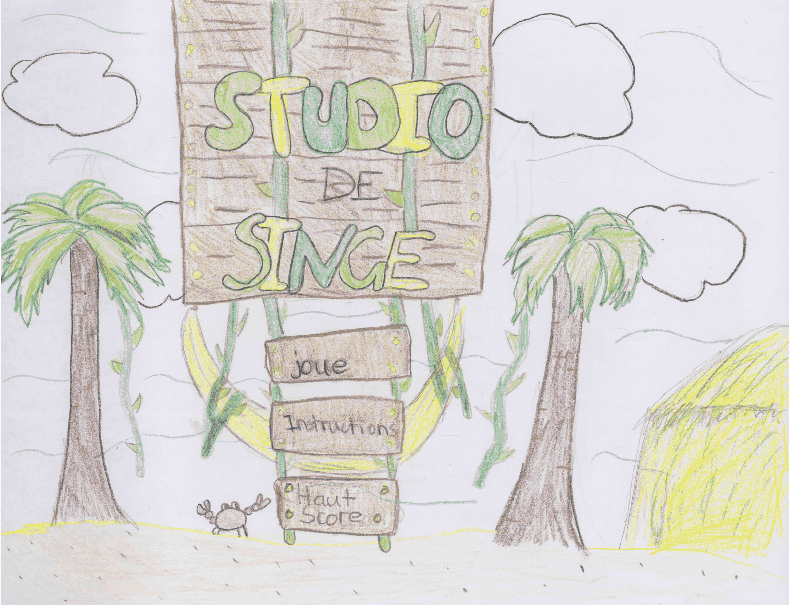 STUDIO
DE
SINGE
joue
Intructions
Haut
Score